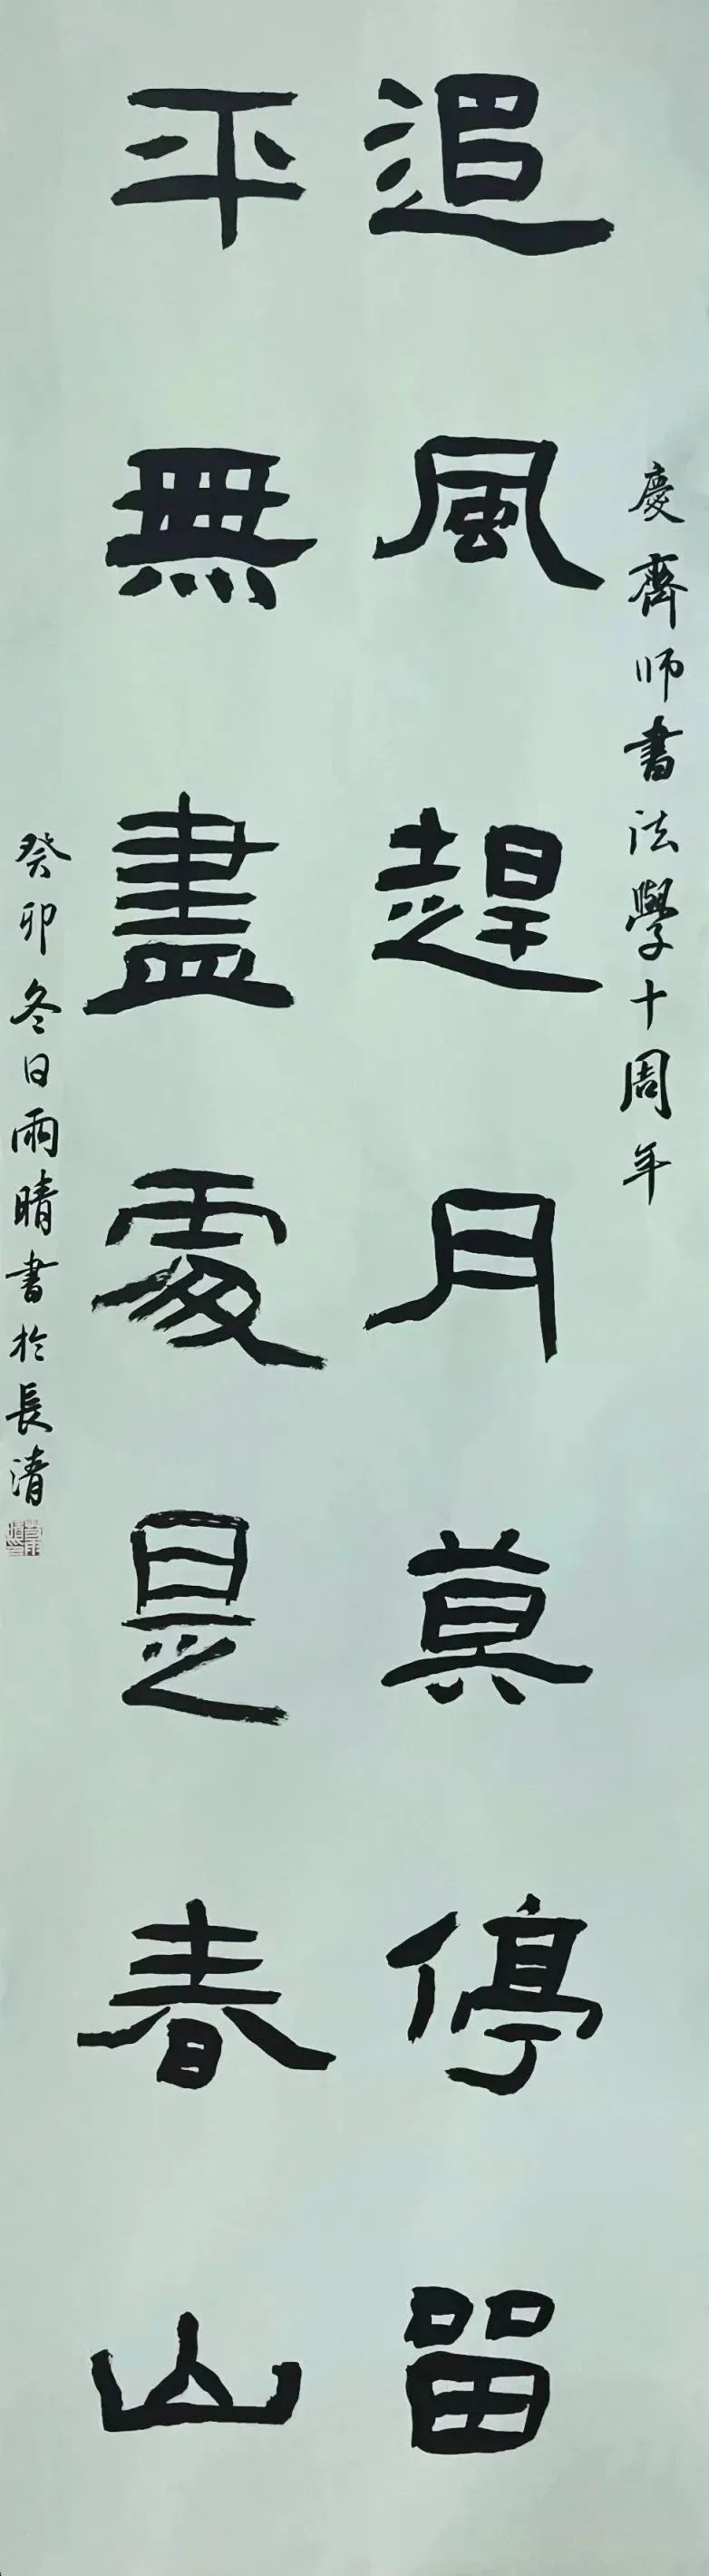 慶齊師書法學十周年
追風趕月莫停留
平無盡處是春山
癸卯冬日雨晴書於長清